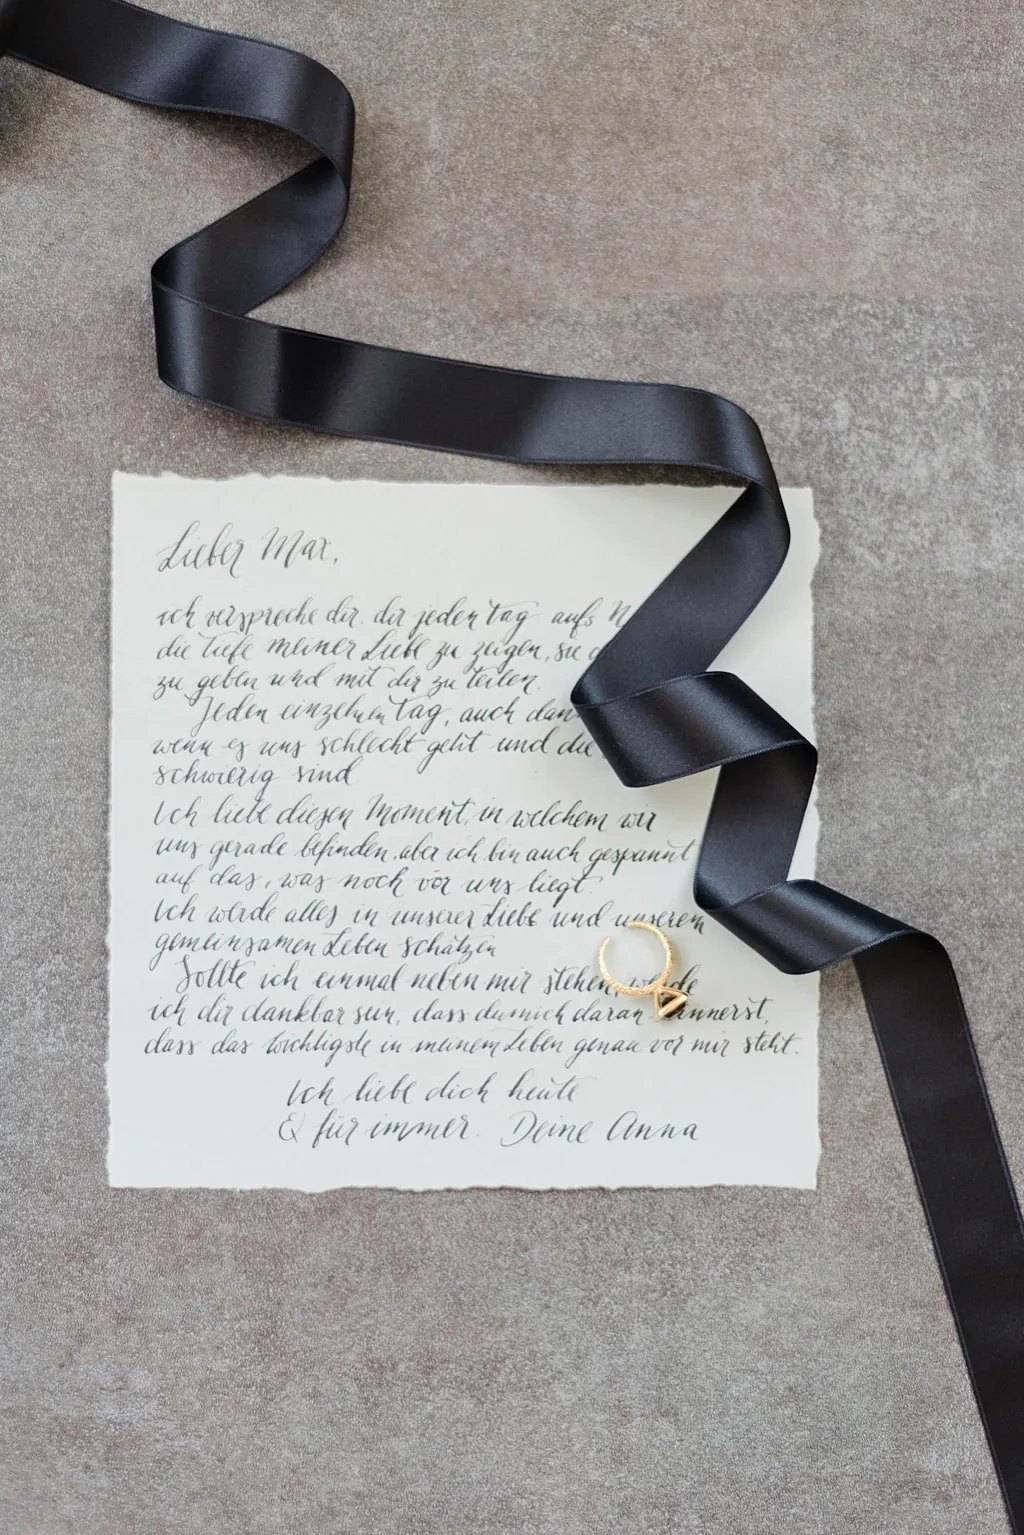 Lieber Max,
ich verspreche dir. dir jeden Tag aufs N
die Tiefe meiner Liebe zu zeigen, sie
zu geben und mit dir zu teilen.
Jeden einzelnen Tag, auch dan
wenn es uns schlecht geht und die
schwierig sind
Ich liebe diesen Moment, in welchem wir
uns gerade befinden, aber ich bin auch gespannt
auf das, was noch vor uns liegt.
Ich werde alles in unserer Liebe und unserem
gemeinsamen Leben schätzen
Sollte ich einmal neben mir stehen, werde
ich dir dankbar sein, dass du mich daran erinnerst,
dass das Wichtigste in meinem Leben genau vor mir steht.
Ich liebe dich heute
& für immer. Deine Anna